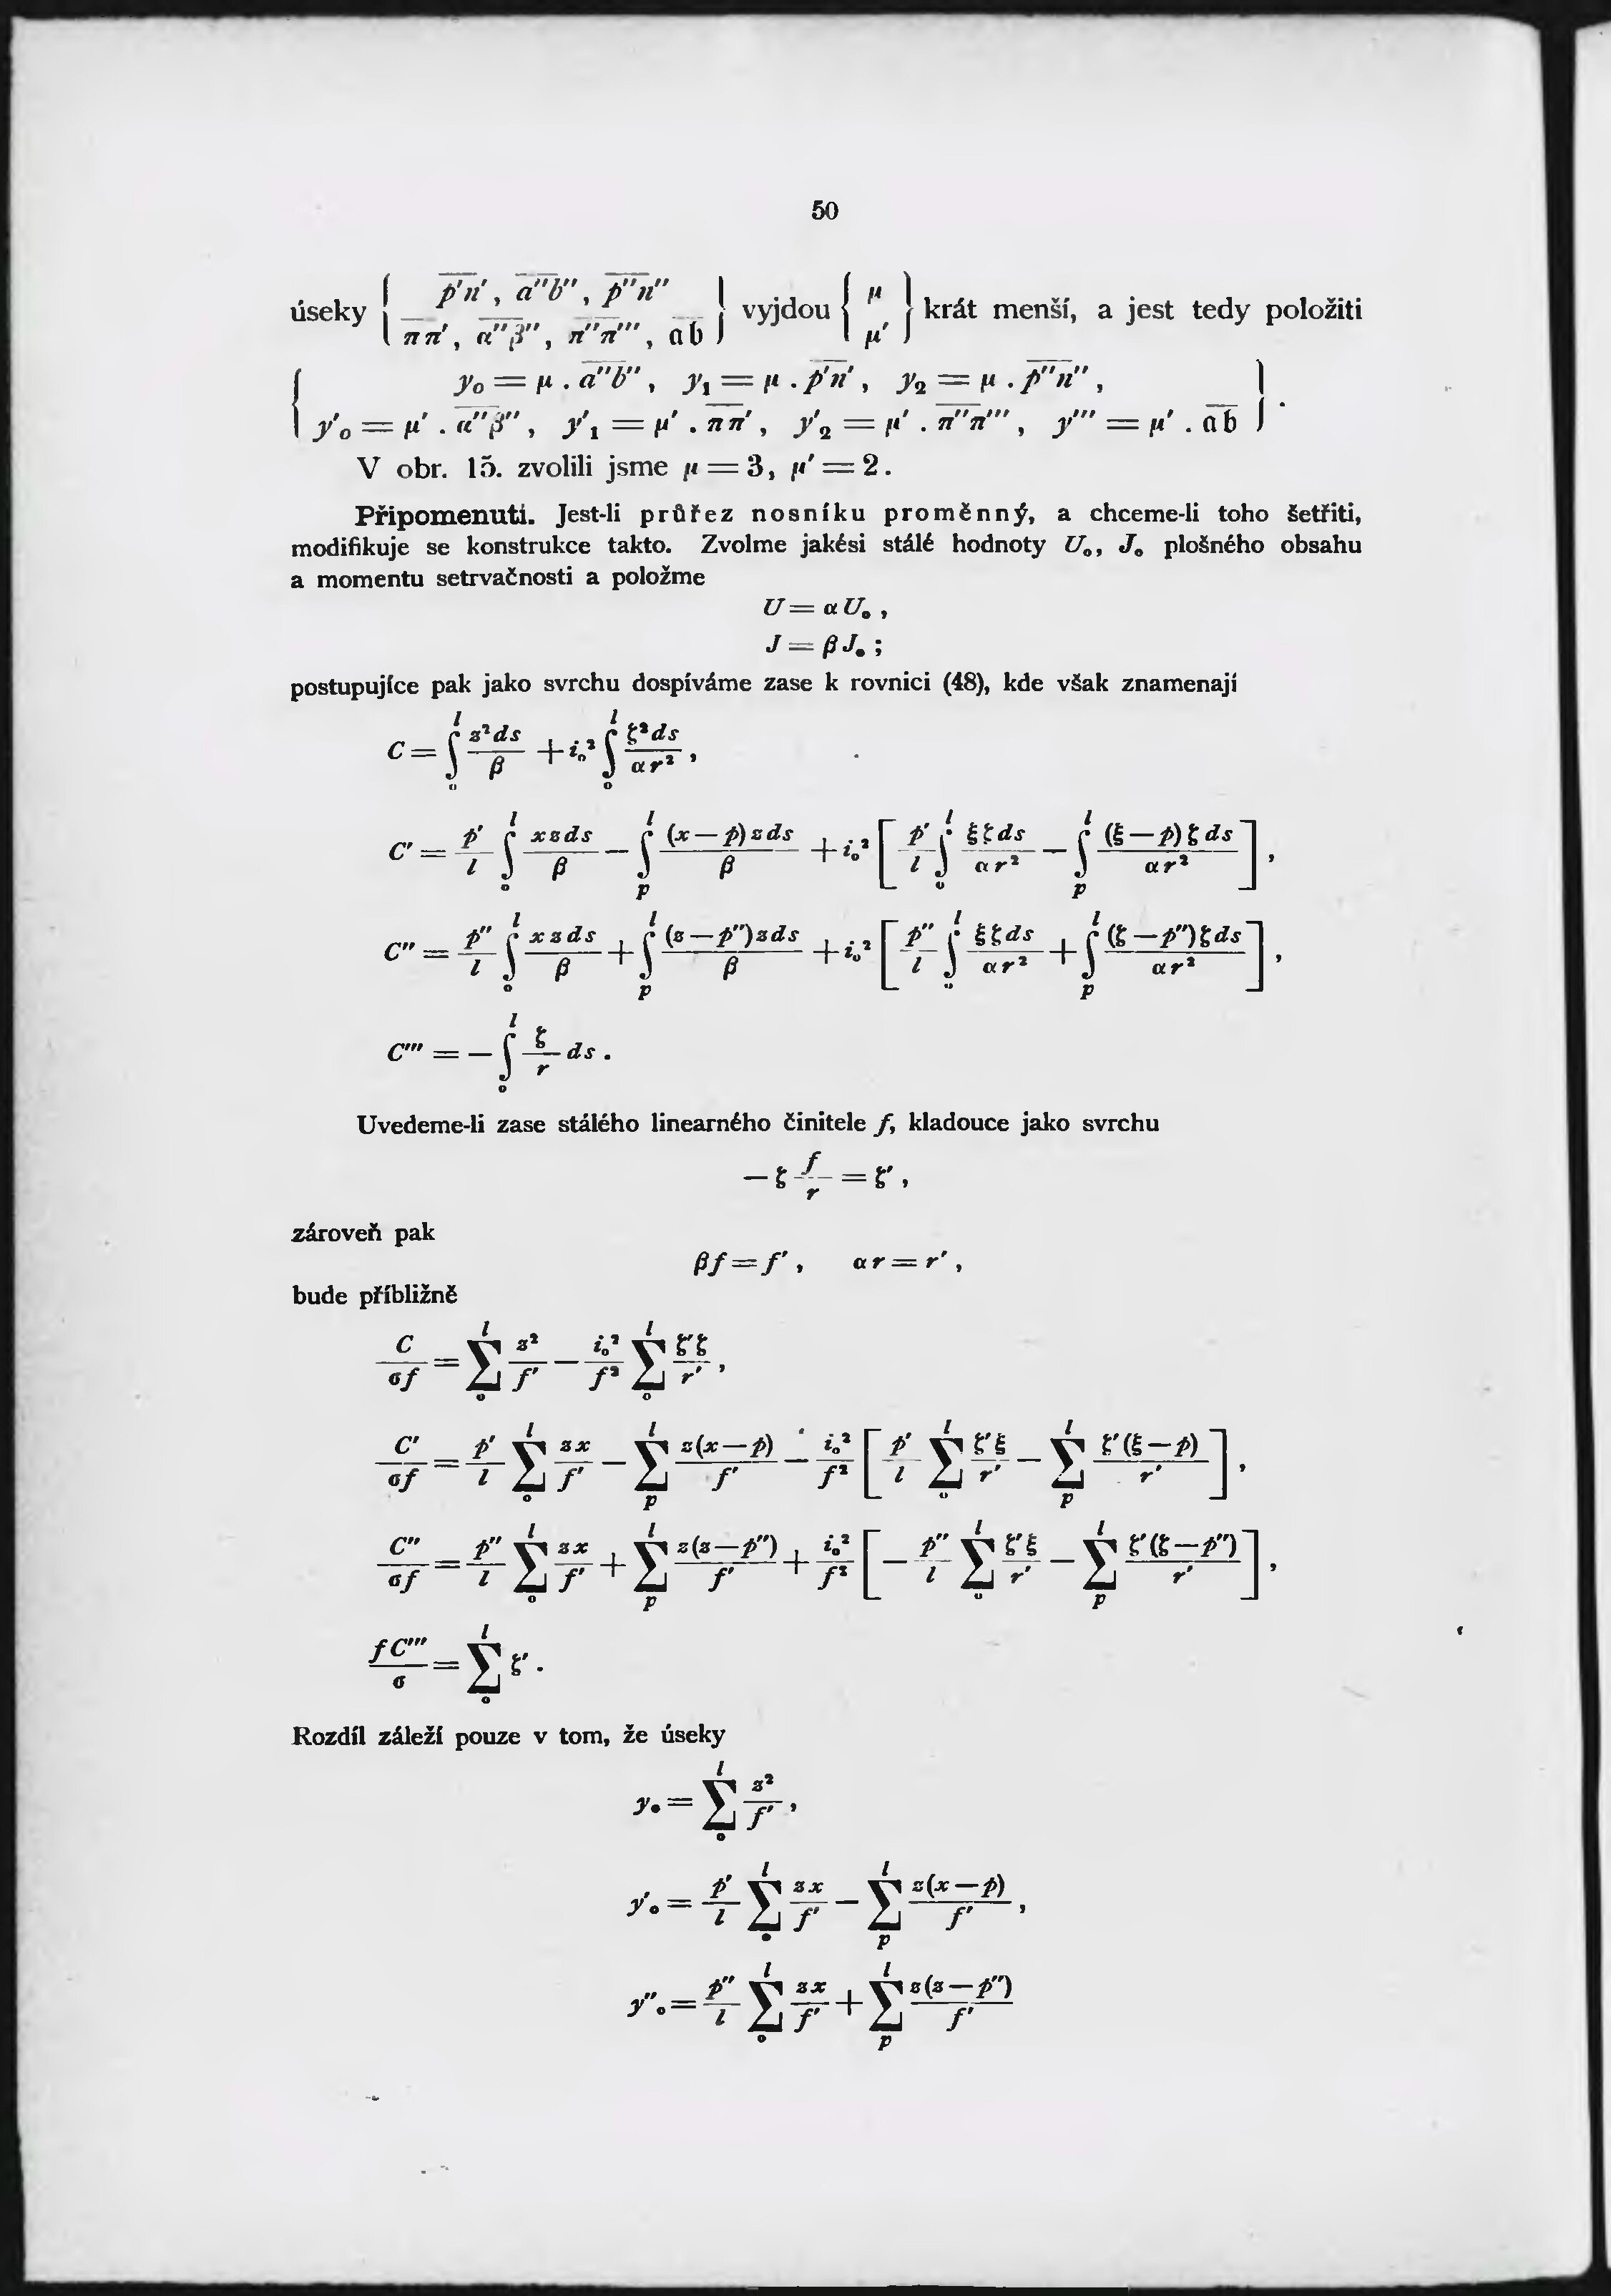 50
úseky { p'n', a''b'', p''n'' / ππ', α''β'', π''π''', ab } vyjdou { μ / μ' } krát menší, a jest tedy položiti
{ y₀ = μ . a''b'', y₁ = μ . p'n', y₂ = μ . p''n'',
y'₀ = μ' . α''β'', y'₁ = μ' . ππ', y'₂ = μ' . π''π''', y''' = μ' . ab } .
V obr. 15. zvolili jsme μ = 3, μ' = 2.
Připomenutí. Jest-li průřez nosníku proměnný, a chceme-li toho šetřiti,
modifikuje se konstrukce takto. Zvolme jakési stálé hodnoty U₀, J₀ plošného obsahu
a momentu setrvačnosti a položme
U = α U₀ ,
J = β J₀ ;
postupujíce pak jako svrchu dospíváme zase k rovnici (48), kde však znamenají
C = ∫₀ˡ z²ds/β + i₀² ∫₀ˡ ζ²ds/αr² ,
C' = p'/l ∫₀ˡ xzds/β — ∫ₚˡ (x — p)zds/β + i₀² [ p'/l ∫₀ˡ ξζds/αr² — ∫ₚˡ (ξ — p)ζds/αr² ] ,
C'' = p''/l ∫₀ˡ xzds/β + ∫ₚˡ (z — p'')zds/β + i₀² [ p''/l ∫₀ˡ ξζds/αr² + ∫ₚˡ (ζ — p'')ζds/αr² ] ,
C''' = — ∫₀ˡ ζ/r ds .
Uvedeme-li zase stálého linearného činitele f, kladouce jako svrchu
— ζ f/r = ζ' ,
zároveň pak
βf = f' , αr = r' ,
bude příbližně
C/σf = Σ₀ˡ z²/f' — i₀²/f² Σ₀ˡ ζ'ζ/r' ,
C'/σf = p'/l Σ₀ˡ zx/f' — Σₚˡ z(x — p)/f' — i₀²/f² [ p'/l Σ₀ˡ ζ'ξ/r' — Σₚˡ ζ'(ξ — p)/r' ] ,
C''/σf = p''/l Σ₀ˡ zx/f' + Σₚˡ z(z — p'')/f' + i₀²/f² [ — p''/l Σ₀ˡ ζ'ξ/r' — Σₚˡ ζ'(ζ — p'')/r' ] ,
fC'''/σ = Σ₀ˡ ζ' .
Rozdíl záleží pouze v tom, že úseky
y₀ = Σ₀ˡ z²/f' ,
y'₀ = p'/l Σ₀ˡ zx/f' — Σₚˡ z(x — p)/f' ,
y''₀ = p''/l Σ₀ˡ zx/f' + Σₚˡ z(z — p'')/f'